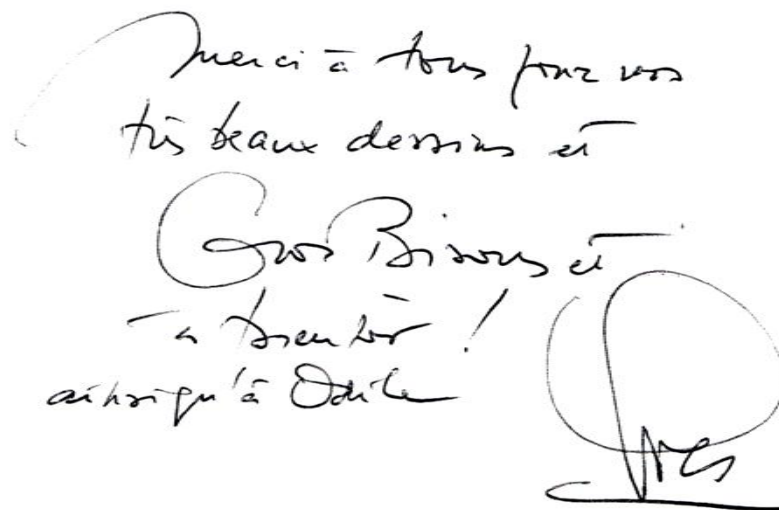 Merci à tous pour vos
très beaux dessins et
Gros Bisous et
à bientôt !
ainsi qu'à Odile
Yves